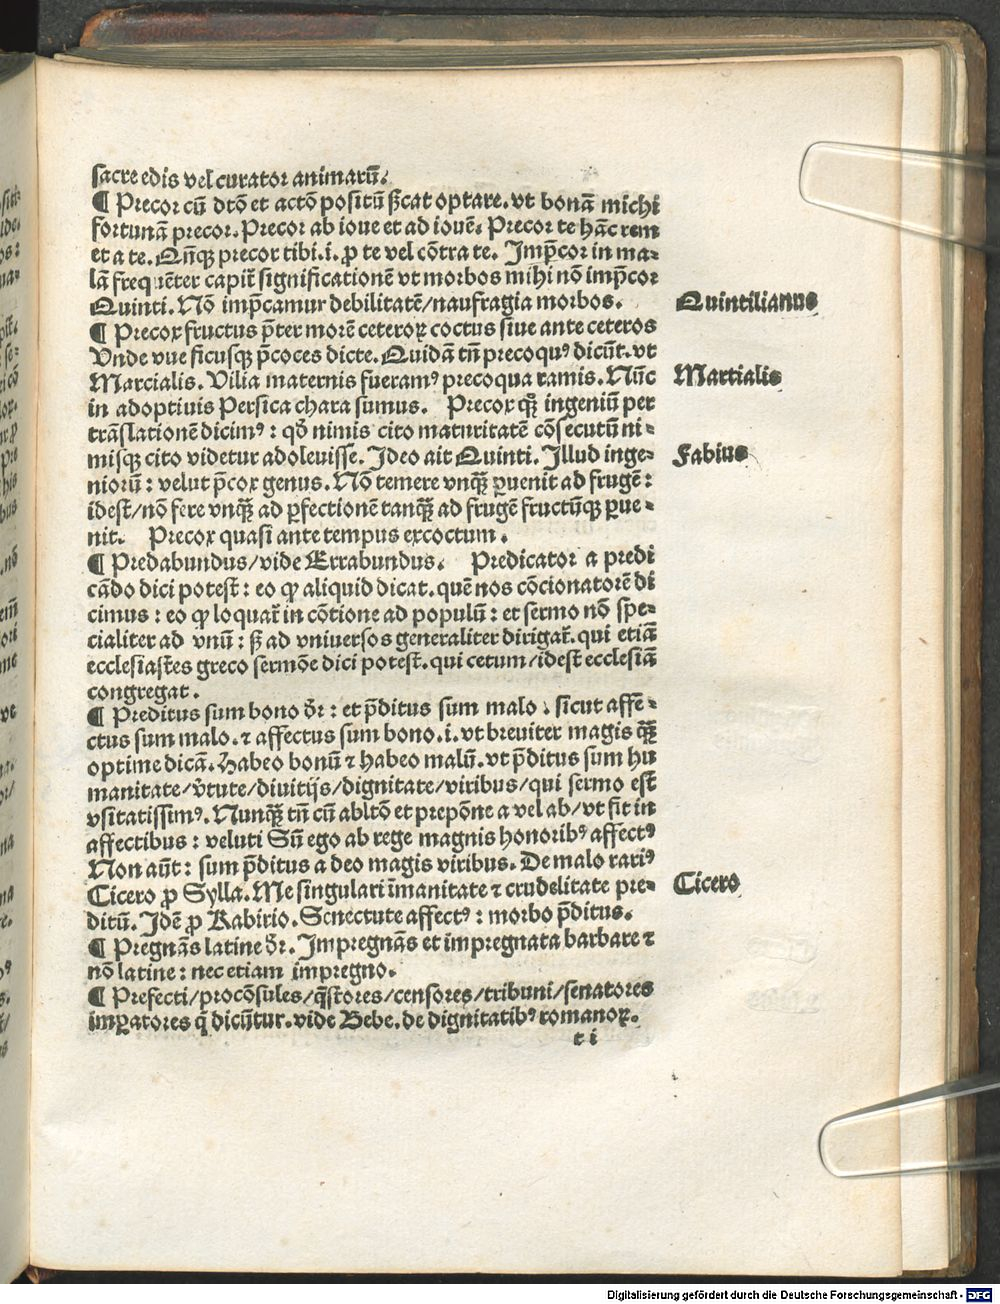 sacre edis vel curator animarū.
¶ Precor cū dtō et actō positū sīcat optare. vt bonā michi
fortunā precor. Precor ab ioue et ad iouē. Precor te hāc rem
et a te. Qn̄qꝫ precor tibi .i. ꝓ te vel cōtra te. Imp̄cor in ma⸗
lā frequēter capit̄ significationē vt morbos mihi nō imp̄cor
Quinti. Nō imp̄camur debilitatē/naufragia morbos.
Quintilianus
¶ Precox fructus p̄ter morē ceteroꝝ coctus siue ante ceteros
Vnde vue ficusqꝫ p̄coces dicte. Quidā tn̄ precoquꝰ dicūt. vt
Marcialis. Vilia maternis fueramꝰ precoqua ramis. Nūc
Martialis
in adoptiuis Persica chara sumus. Precox qꝫ̄ ingeniū per
trāslationē dicimꝰ: qd̄ nimis cito maturitatē cōsecutū ni⸗
misqꝫ cito videtur adoleuisse. Ideo ait Quinti. Illud inge⸗
Fabius
niorū: velut p̄cox genus. Nō temere vnqꝫ̄ ꝑuenit ad frugē:
idest/nō fere vnqꝫ̄ ad ꝑfectionē tanqꝫ̄ ad frugē fructūqꝫ ꝑue⸗
nit. Precox quasi ante tempus excoctum.
¶ Predabundus/vide Errabundus. Predicator a predi
cādo dici potest: eo ꝙ aliquid dicat. quē nos cōcionatorē di
cimus: eo ꝙ loquat̄ in cōtione ad populū: et sermo nō spe⸗
cialiter ad vnū: sꝫ ad vniuersos generaliter dirigat̄. qui etiā
ecclesiastes greco sermōe dici potest. qui cetum/idest ecclesiā
congregat.
¶ Preditus sum bono dr̄: et p̄ditus sum malo. sicut affe⸗
ctus sum malo. ⁊ affectus sum bono .i. vt breuiter magis qꝫ̄
optime dicā. Habeo bonū ⁊ habeo malū. vt p̄ditus sum hu
manitate/v̄tute/diuitijs/dignitate/viribus/qui sermo est
vsitatissimꝰ. Nunqꝫ̄ tn̄ cū abltō et prepōne a vel ab/vt fit in
affectibus: veluti Sū ego ab rege magnis honoribꝰ affectꝰ
Non aūt: sum p̄ditus a deo magis viribus. De malo rariꝰ
Cicero ꝓ Sylla. Me singulari īmanitate ⁊ crudelitate pre⸗
Cicero
ditū. Idē ꝓ Rabirio. Senectute affectꝰ: morbo p̄ditus.
¶ Pregnās latine dr̄. Impregnās et impregnata barbare ⁊
nō latine: nec etiam impregno.
¶ Prefecti/procōsules/q̄stores/censores/tribuni/senatores
imꝑatores q̄ dicūtur. vide Bebe. de dignitatibꝰ romanoꝝ.
t i
Digitalisierung gefördert durch die Deutsche Forschungsgemeinschaft - DFG